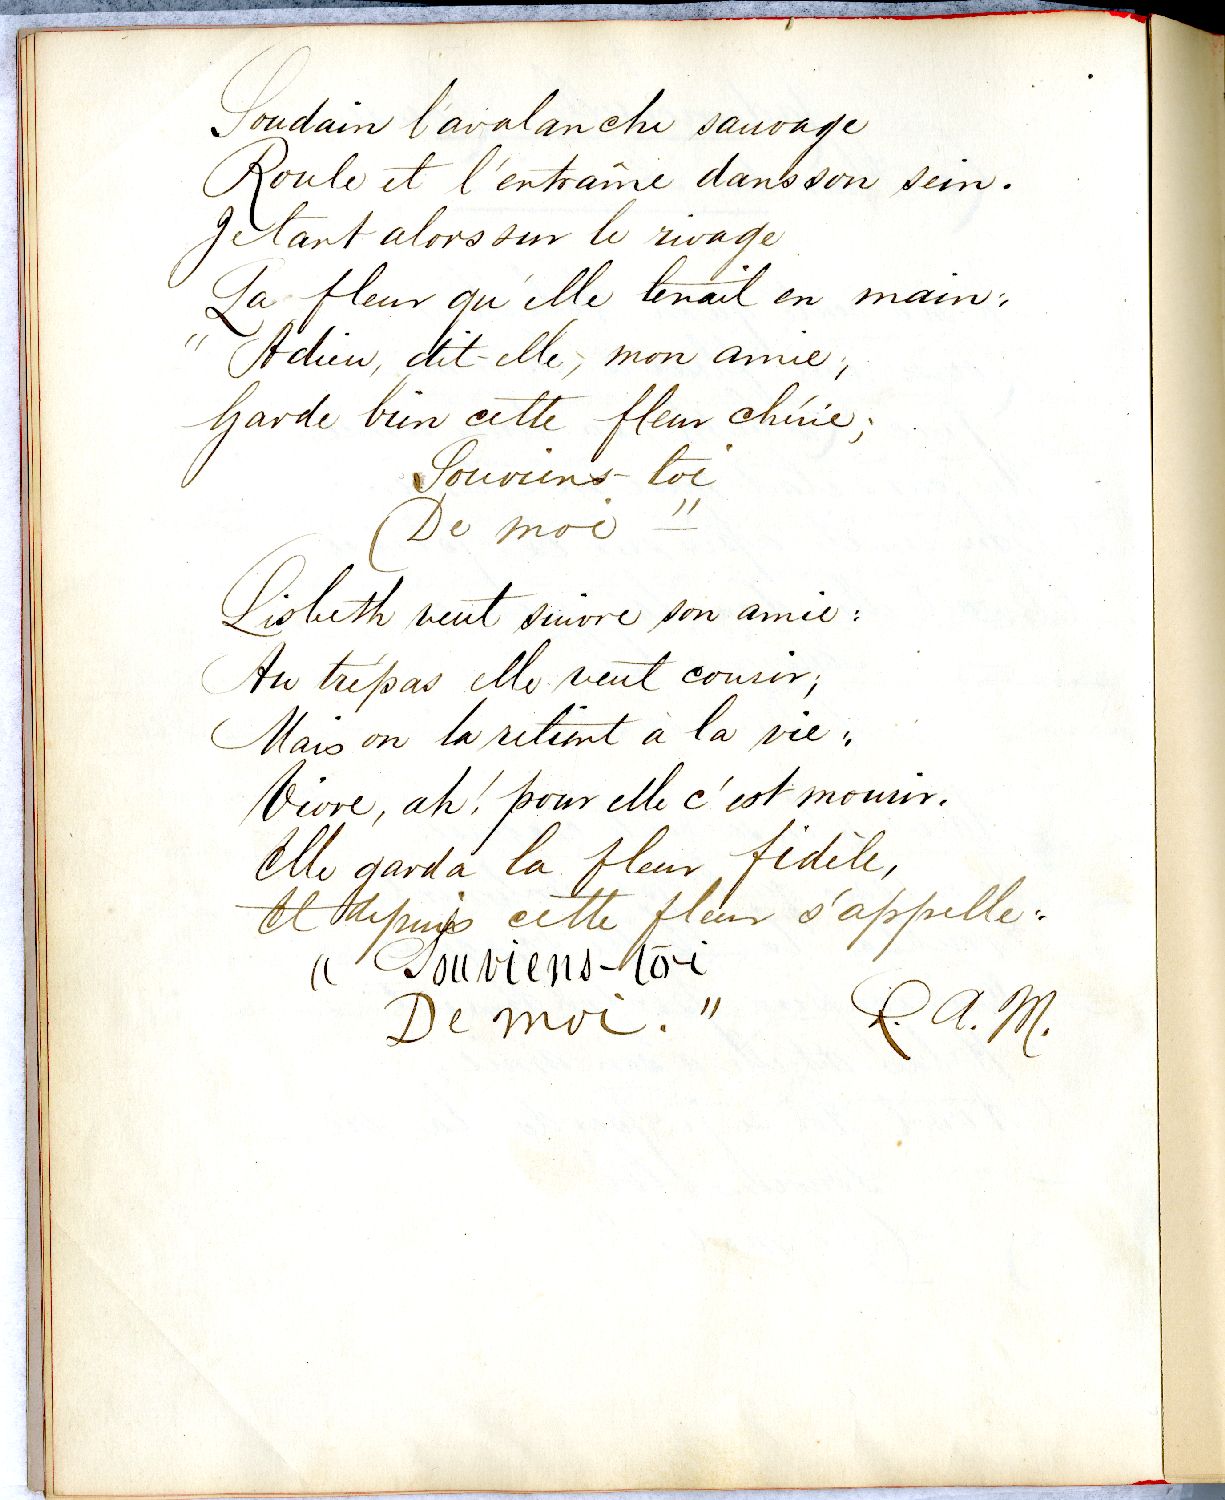 Soudain l'avalanche sauvage
Roule et l'entraîne dans son sein.
Jetant alors sur le rivage
La fleur qu'elle tenait en main:
" Adieu, dit-elle, mon amie;
Garde bien cette fleur chérie;
Souviens-toi
De moi "
Lisbeth veut suivre son amie:
Au trépas elle veut courir;
Mais on la retient à la vie:
Vivre, ah! pour elle c'est mourir.
Elle garda la fleur fidèle,
Et depuis cette fleur s'appelle:
" Souviens-toi
De moi. " A. M.